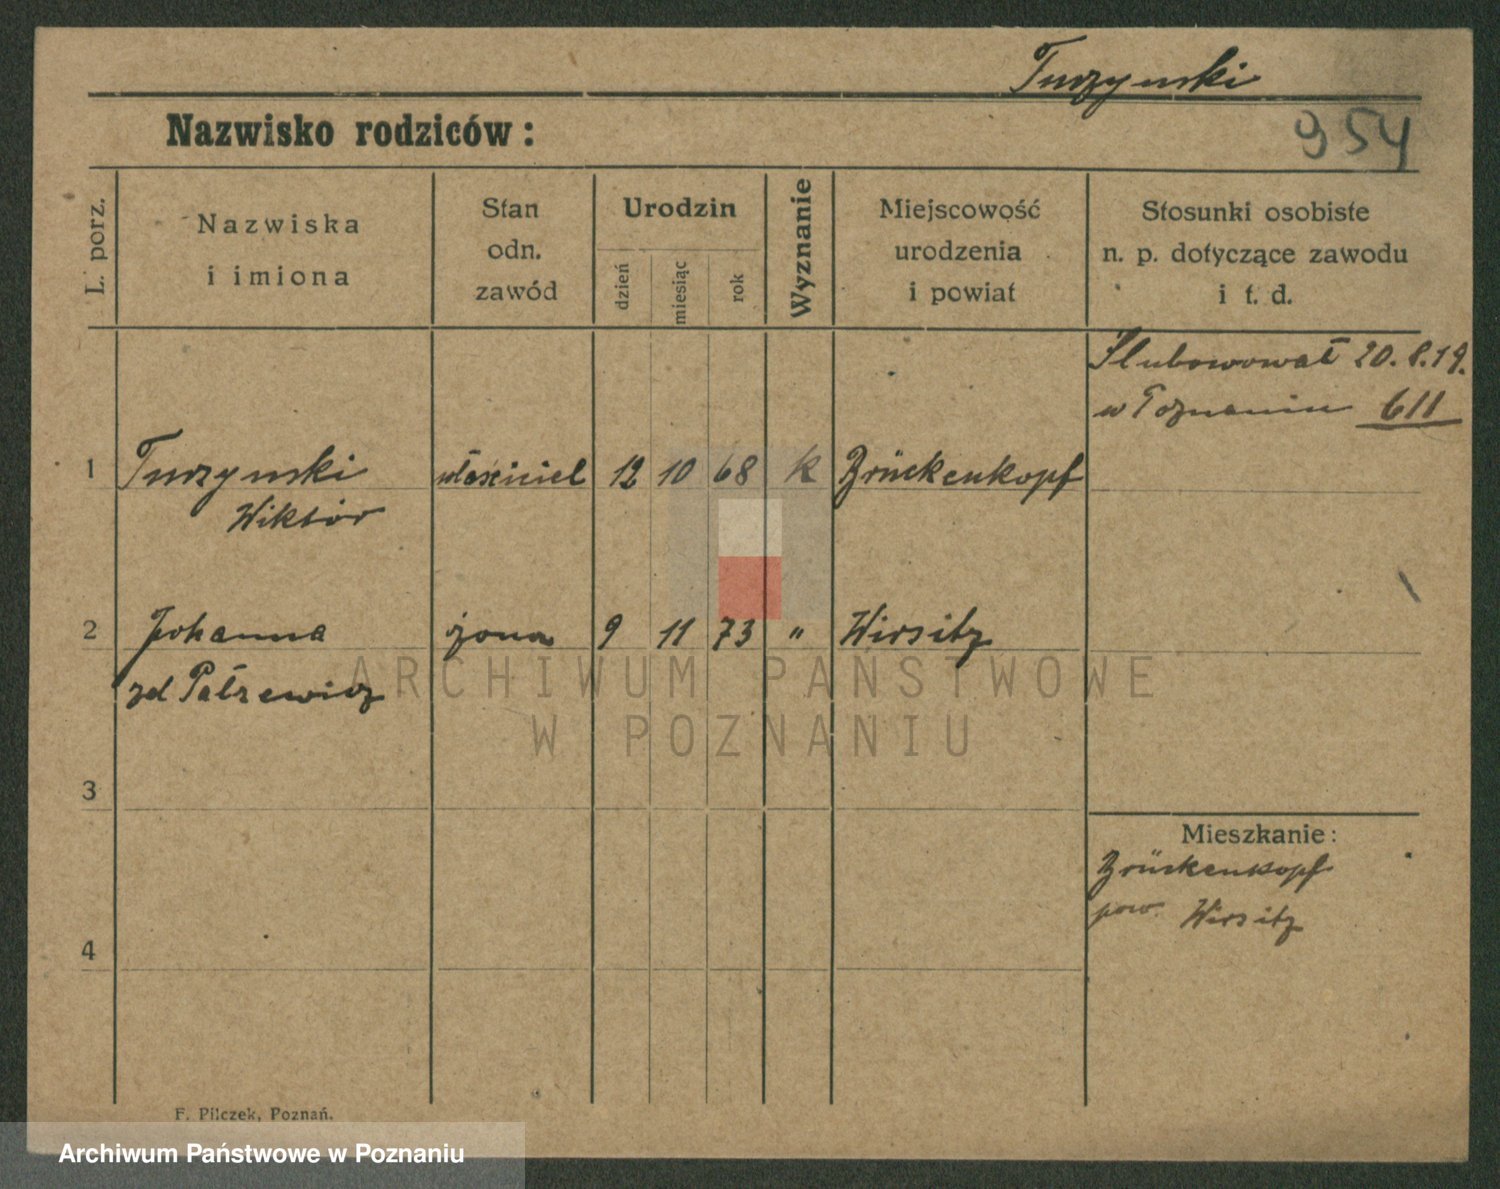 Turzynski
Nazwisko rodziców:
954
L. porz.
Nazwiska
i imiona
Stan
odn.
zawód
Urodzin
dzień
miesiąc
rok
Wyznanie
Miejscowość
urodzenia
i powiat
Stosunki osobiste
n. p. dotyczące zawodu
i t. d.
Slubowował 20.8.19.
w Poznaniu 611
1 Turzynski właściciel 12 10 68 k Brückenkopf
Wiktór
2 Johanna żona 9 11 73 " Wirsitz
zd
ARCHIWUM PAŃSTWOWE
W POZNANIU
3
Mieszkanie:
Brückenkopf
pow. Wirsitz
4
F. Pilczek, Poznań.
Archiwum Państwowe w Poznaniu